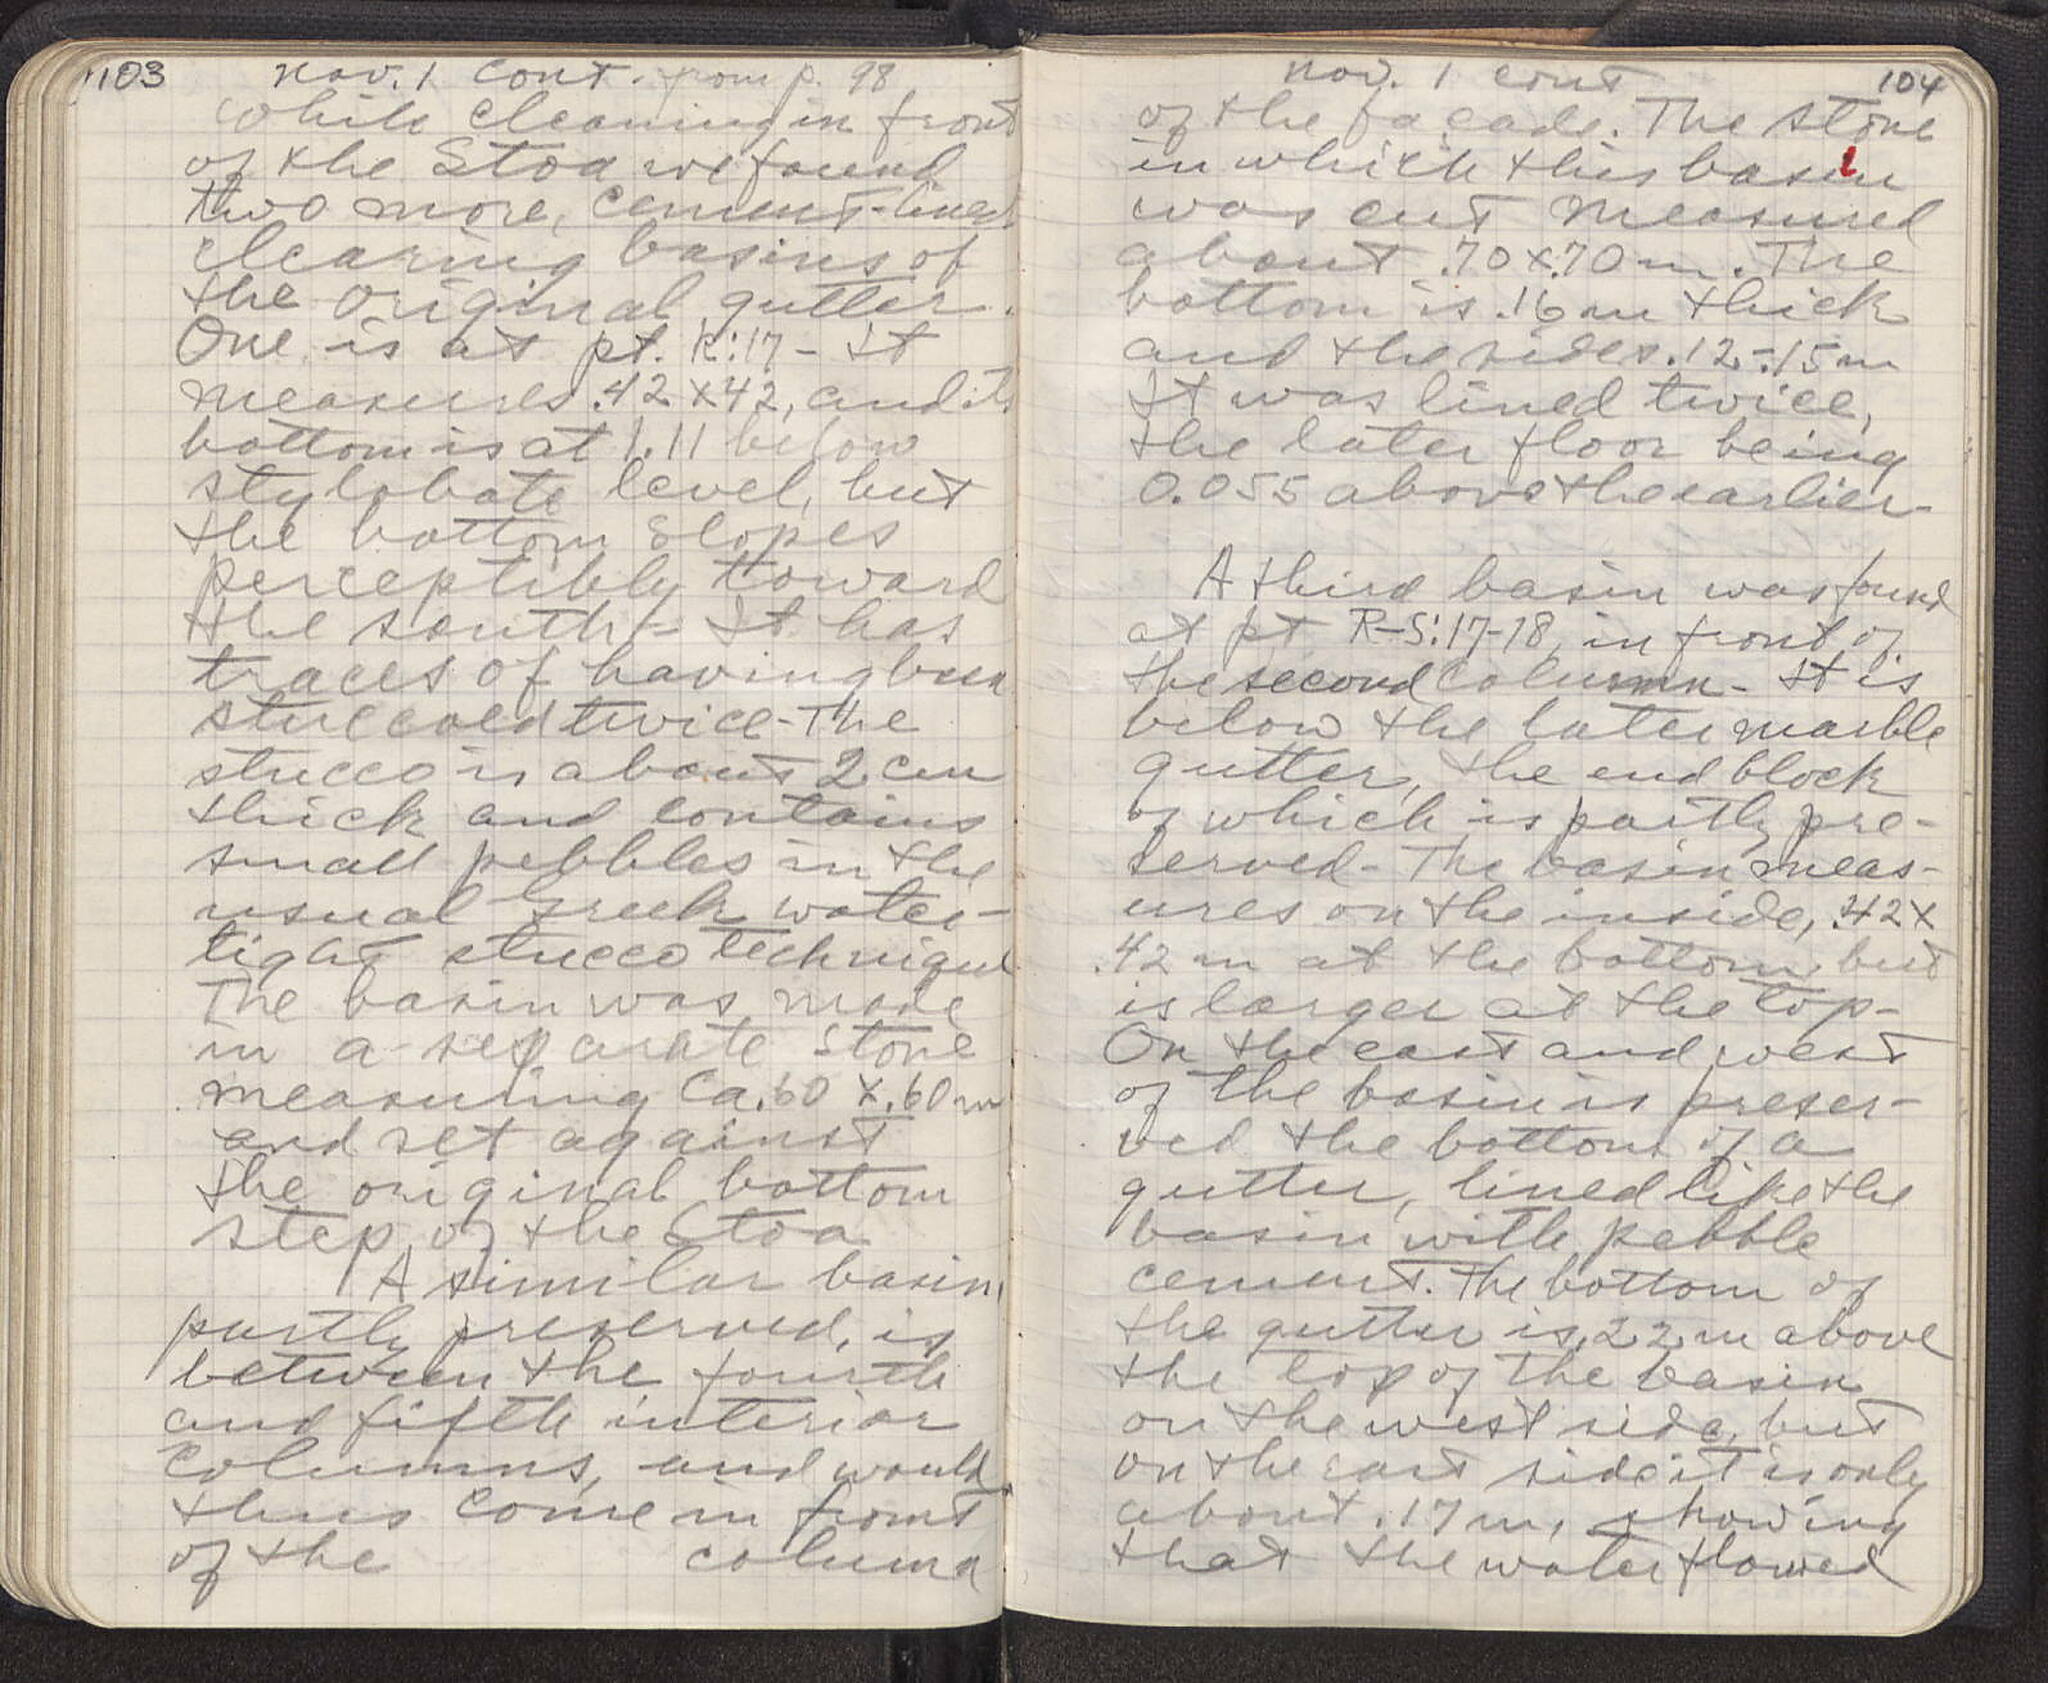 103 Nov. 1 cont. from p. 98
While cleaning in front
of the Stoa we found
two more, cement-lined
clearing basins of
the original gutter.
One is at pt. K:17 - It
measures .42 x 42, and its
bottom is at 1.11 below
stylobate level, but
the bottom slopes
perceptibly toward
the south - It has
traces of having been
stuccoed twice - The
stucco is about 2 cm
thick and contains
small pebbles in the
usual Greek water-
tight stucco technique
The basin was made
in a separate stone
measuring ca .60 x .60 m
and set against
the original bottom
step of the Stoa
A similar basin,
partly preserved, is
between the fourth
and fifth interior
columns, and would
thus come in front
of the column
Nov. 1 cont 104
of the façade. The stone
in which this basin
was cut measured
about .70 x .70 m. The
bottom is .16 m thick
and the sides .12-.15 m
It was lined twice,
the later floor being
0.055 above the earlier -
A third basin was found
at pt R-S:17-18, in front of
the second column - It is
below the later marble
gutter, the end block
of which is partly pre-
served - The basin meas-
ures on the inside, .42 x
.42 m at the bottom but
is larger at the top -
On the east and west
of the basin is preser-
ved the bottom of a
gutter, lined like the
basin with pebble
cement. The bottom of
the gutter is .22 m above
the top of the basin
on the west side, but
on the east side it is only
about .17 m, showing
that the water flowed